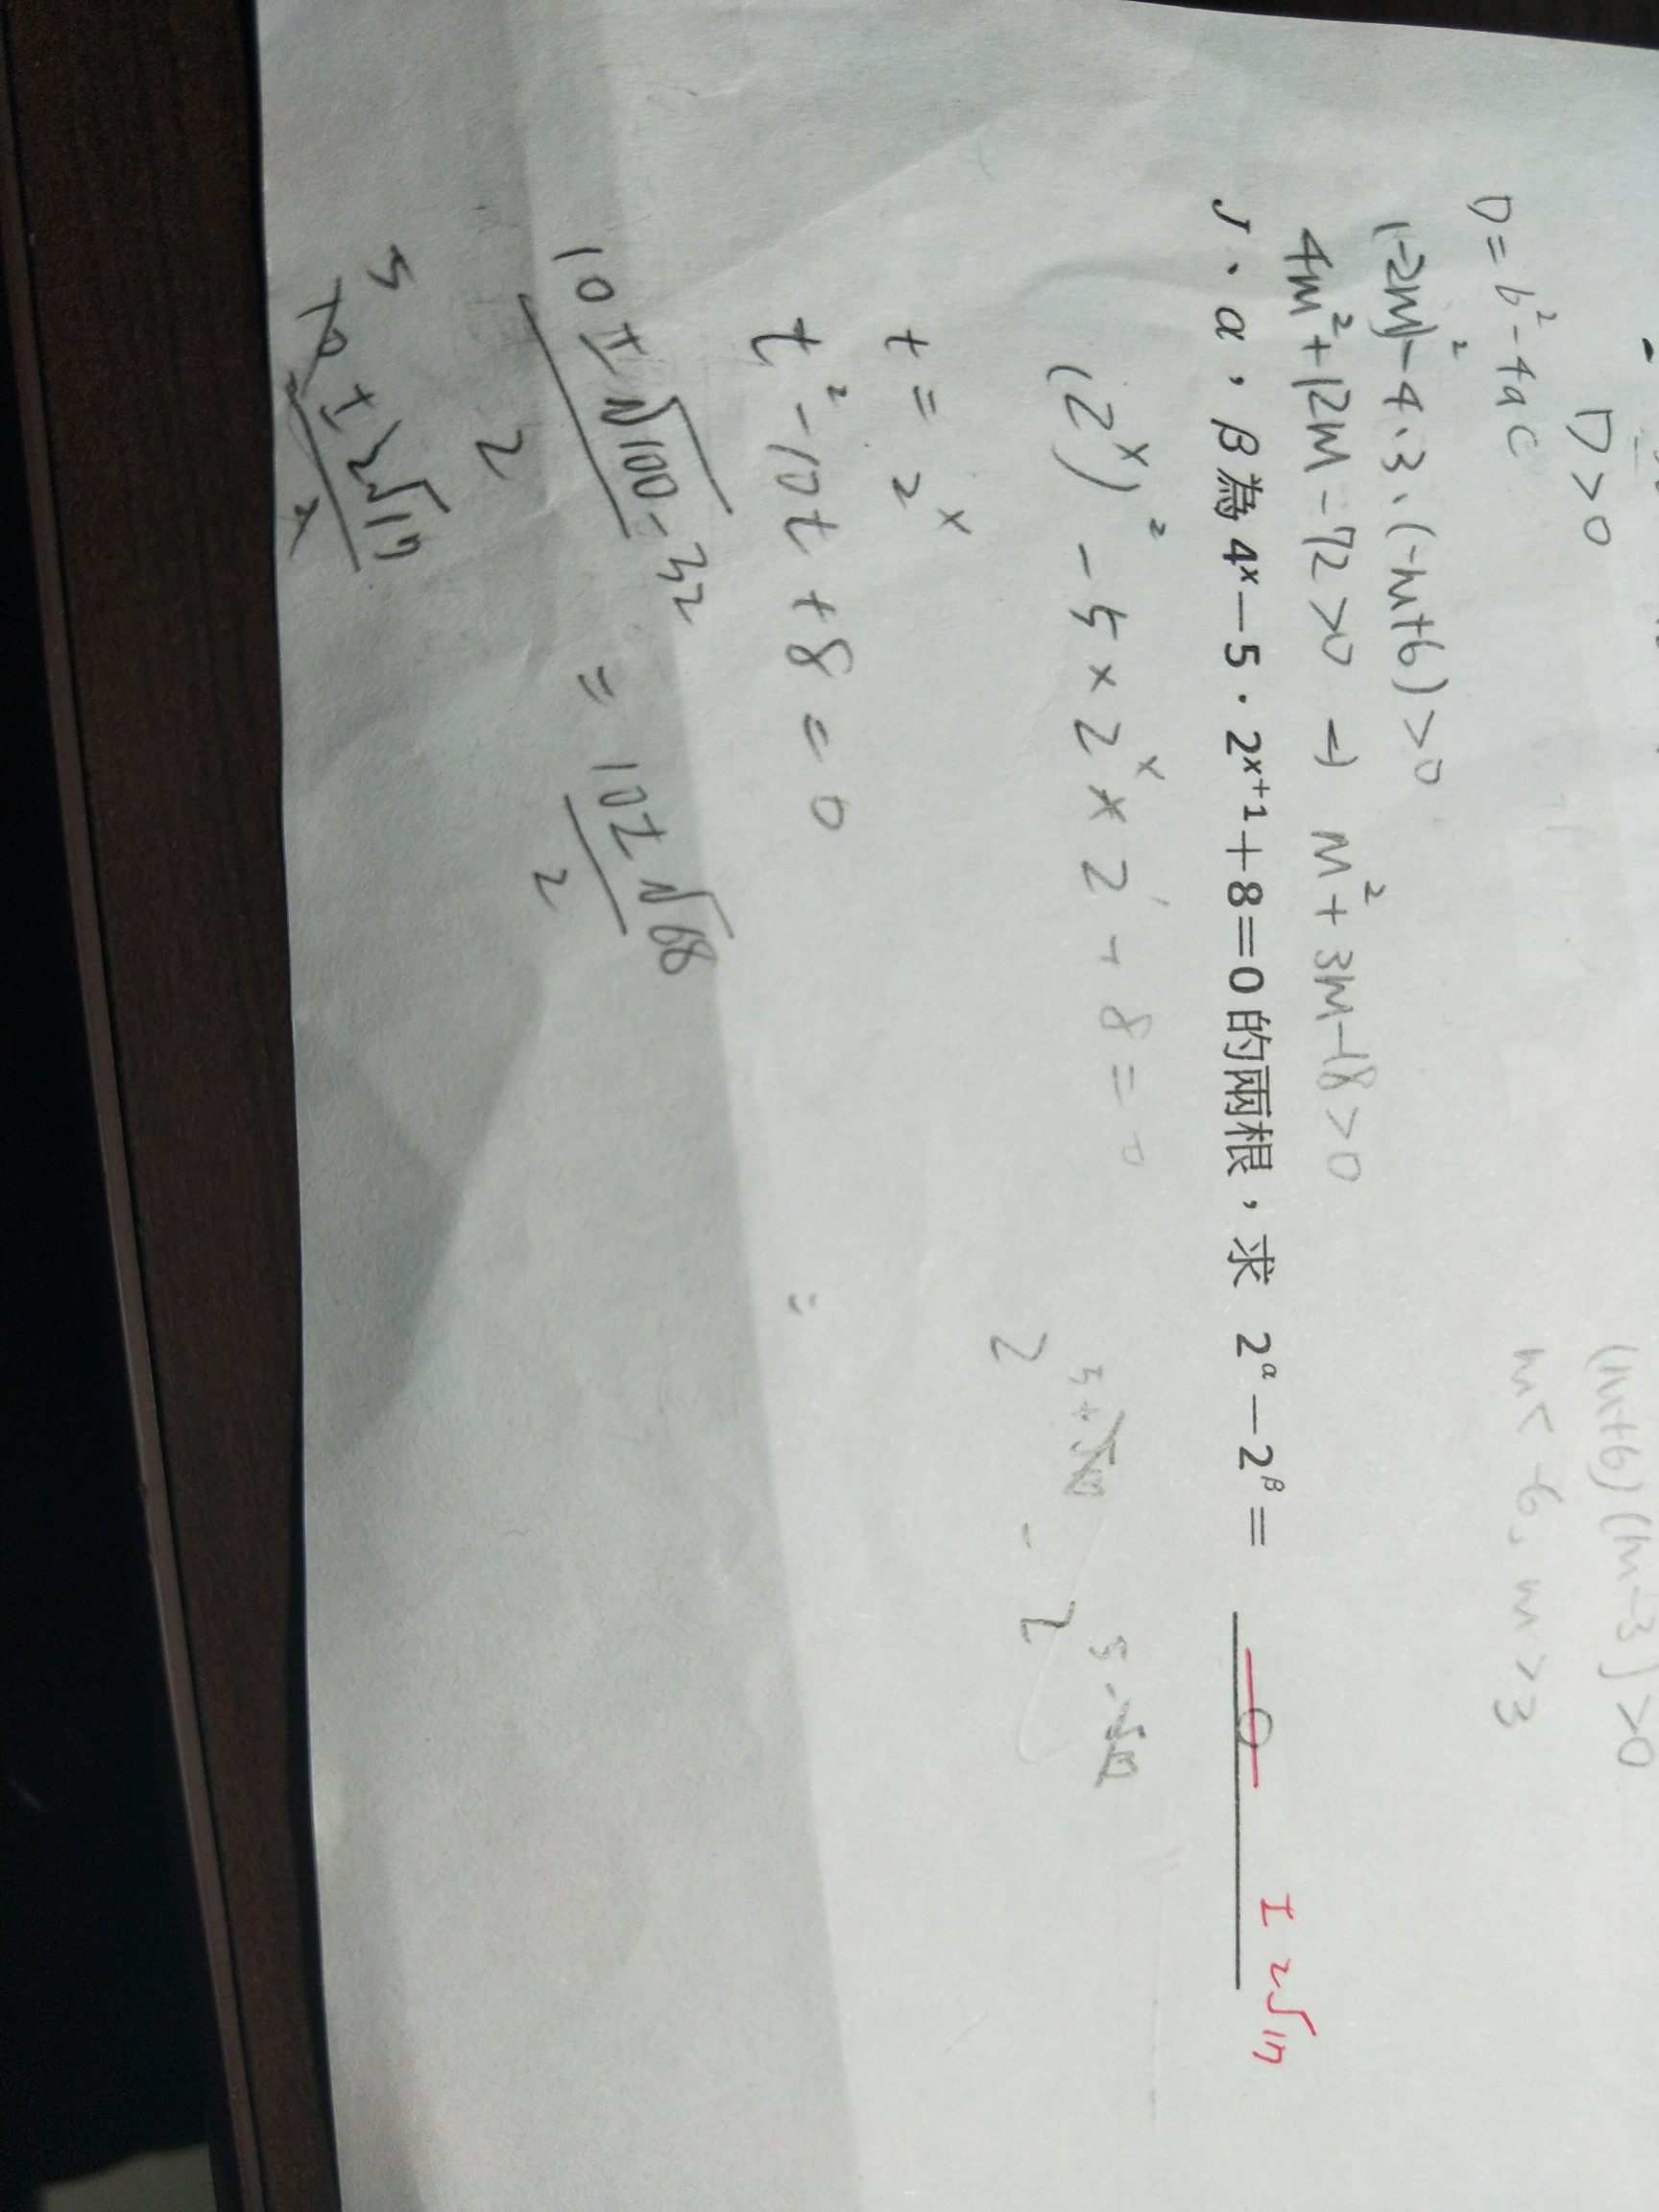 D>0
D=b²-4ac
(-2m)²-4·3·(-m+6)>0
(m+6)(m-3)>0
4m²+12m-72>0 → m²+3m-18>0
m<-6, m>3
J、α，β為 4ˣ－5．2ˣ⁺¹＋8＝0 的兩根，求 2^α－2^β＝ 0 ±2√17
(2ˣ)²-5×2ˣ×2¹+8=0
2^(5+√17) - 2^(5-√17)
t=2ˣ
t²-10t+8=0
=
10±√100-32 / 2 = 10±√68 / 2
5
10±2√17 / 2